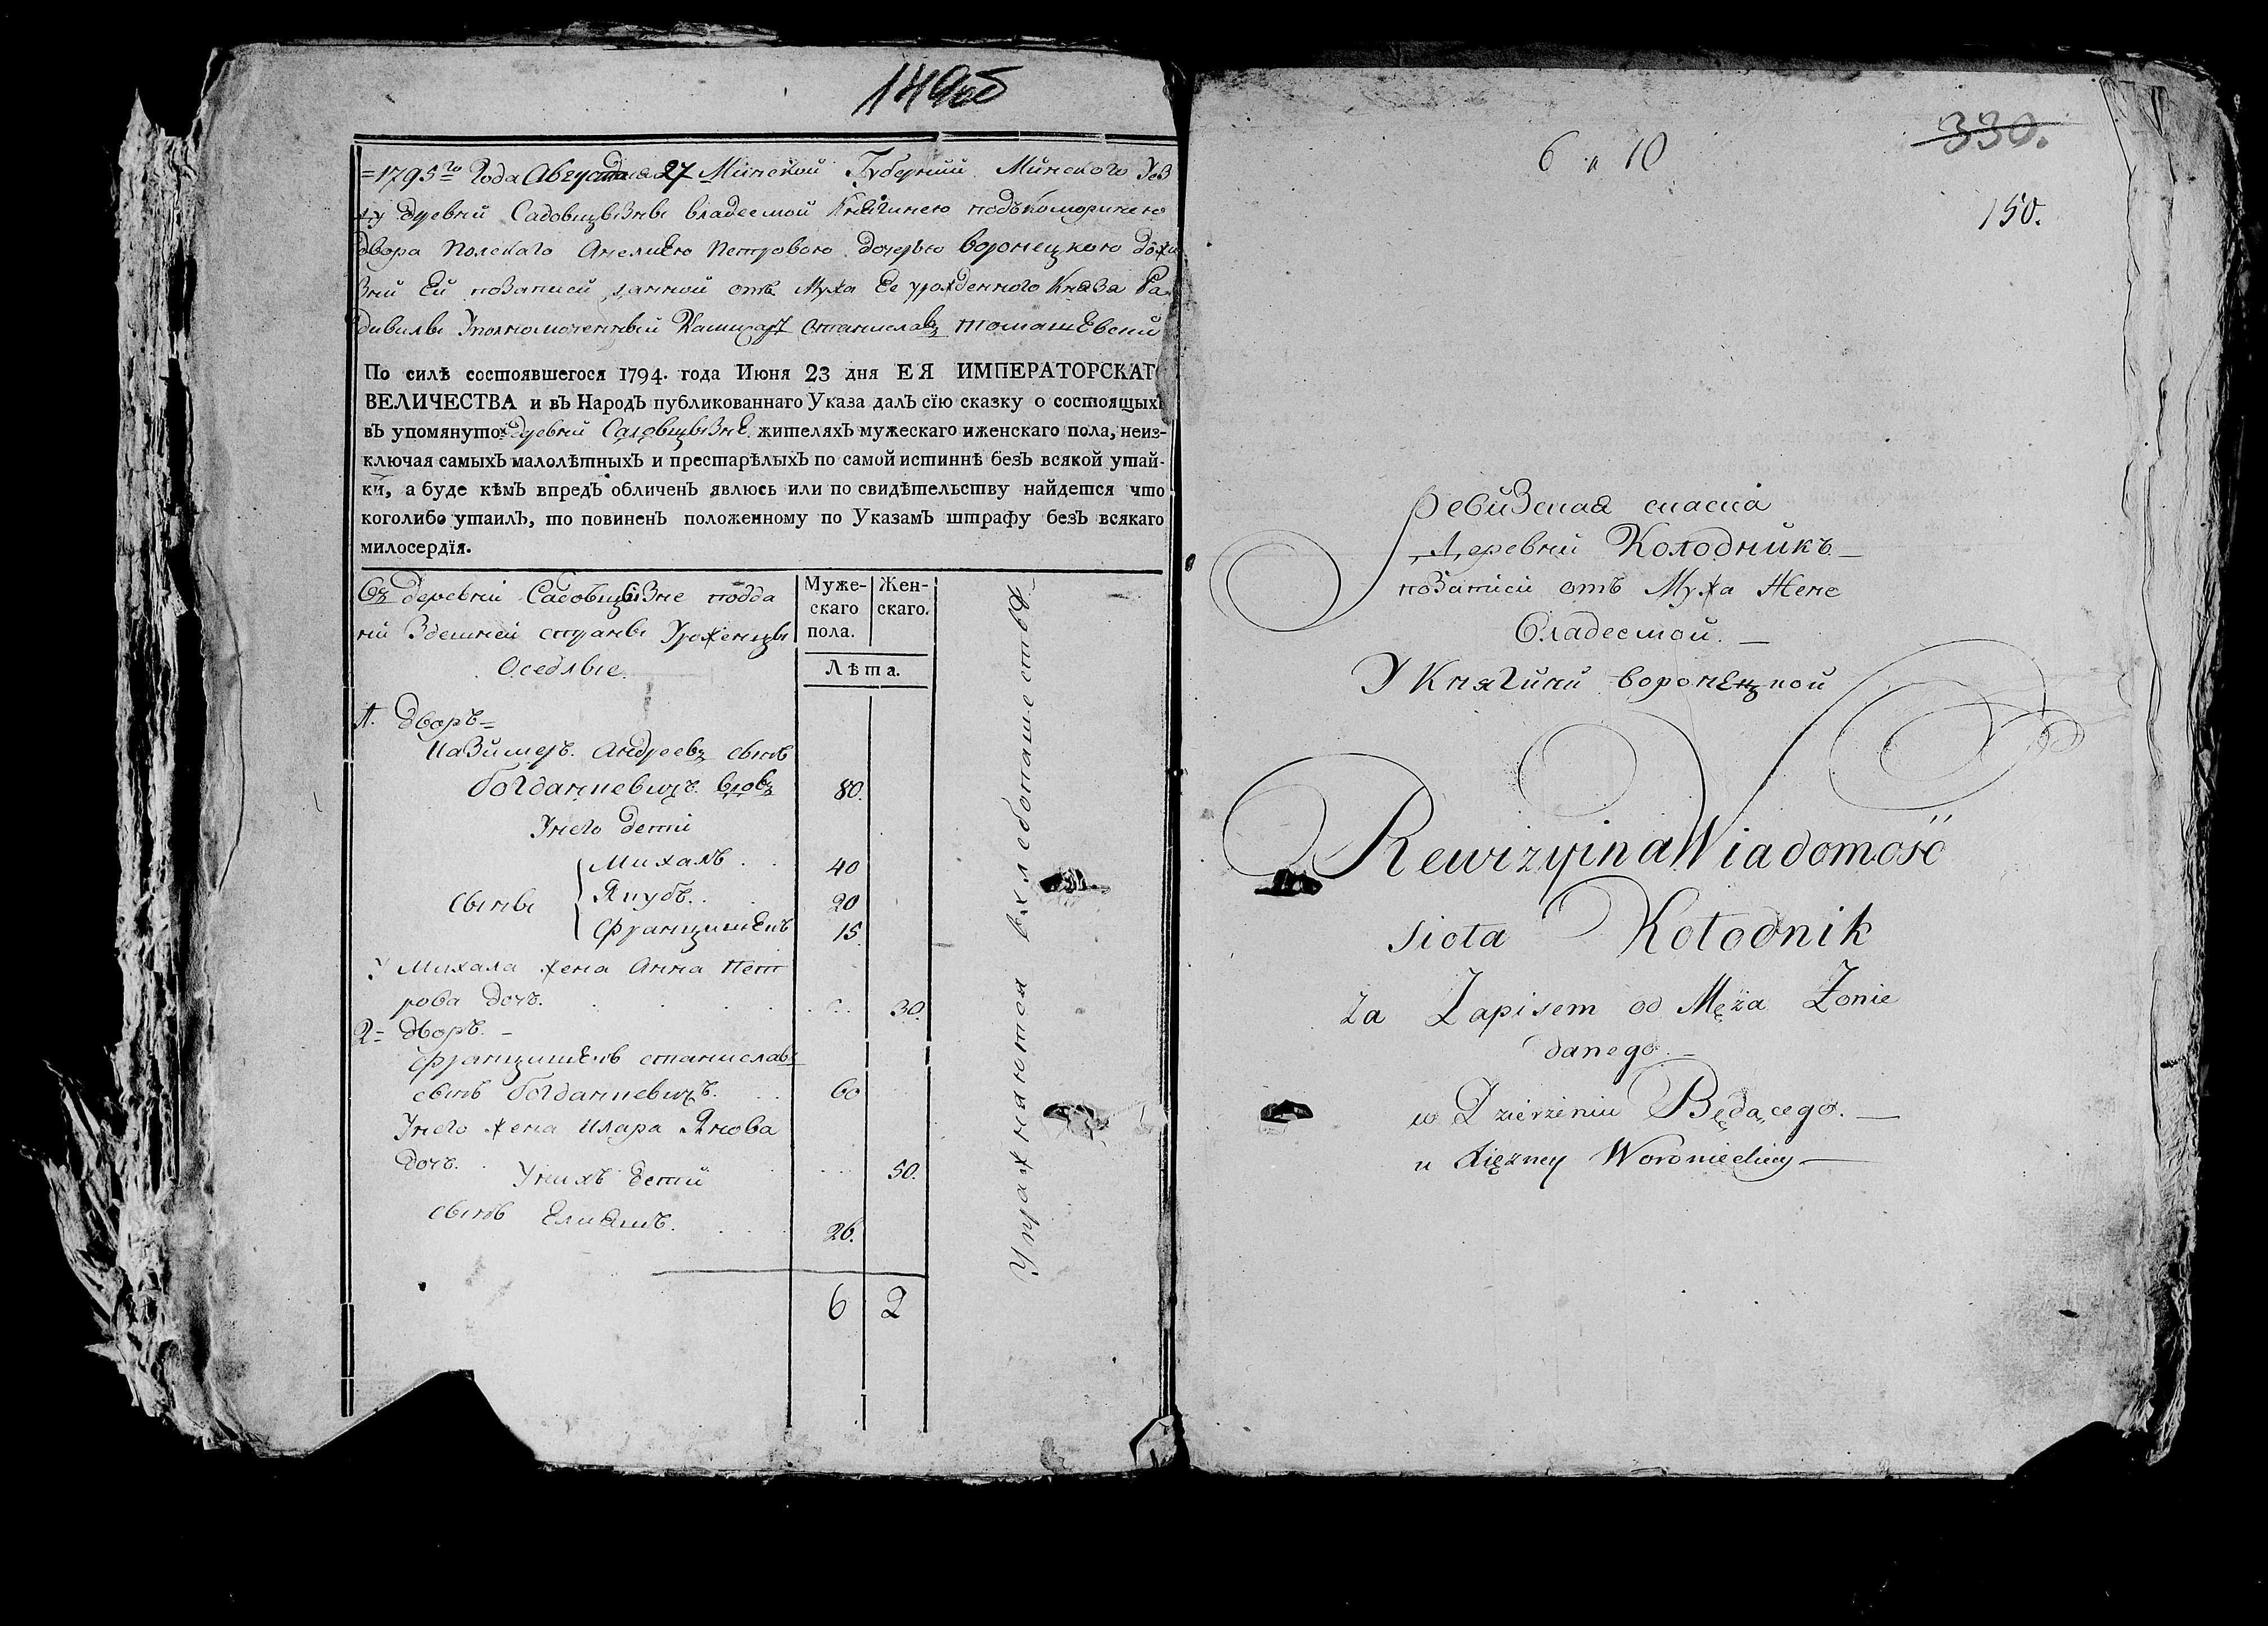 149об
1795го Года Августа 27 Минской Губернии Минского Уез
ду деревни Садовщызны владеемой Княгинею подъкоморинею
двора Полскаго Анелиею Петровою дочерью воронецкою
Ей позаписи данной отъ Мужа Ее урожденного Князя Ра
дивилы Уполномоченный Станиславъ томашевский
По силѣ состоявшегося 1794. года Июня 23 дня ЕЯ ИМПЕРАТОРСКАГ
ВЕЛИЧЕСТВА и въ Народъ публикованнаго Указа далъ сїю сказку о состоящыхъ
въ упомянутой деревни Садовщызне жителяхъ мужескаго иженскаго пола, неиз-
ключая самыхъ малолѣтныхъ и престарѣлыхъ по самой истиннѣ безъ всякой утай-
ки, а буде кѣмъ впредъ обличенъ явлюсь или по свидѣтельству найдется что
коголибо утаилъ, то повиненъ положенному по Указамъ штрафу безъ всякаго
милосердїя.
деревни Садовщызне подда
ни Здешней страны Уроженцы
Оседлые.
Муже-
скаго
пола.
Жен-
скаго.
Лѣта.
1. дворъ
Казимеръ Андреевъ сынъ
богданкевичъ вдовъ 80.
Унего дети
сыны
Михалъ 40
Якубъ 20
Францишекъ 15
У Михала жена Анна Пет
рова дочъ. 30.
2 дворъ
Францишекъ станиславъ
сынъ богданкевичъ. 60
Унего жена Клара Янова
дочъ. 50.
Унихъ дети
сынъ Елияшъ. 26.
6 2
Упражняются вхлебопашестве
6 и 10
330.
150.
Ревизская сказка
Деревни Колодникъ
позаписи отъ Мужа Жене
Владеемой.
У Княгини воронецкой
Rewizyina Wiadomość
sioła Kołodnik
za Zapisem od Męża Żonie
danego
w Dzierżeniu Będącego.
u Xiężney Woronieckiey